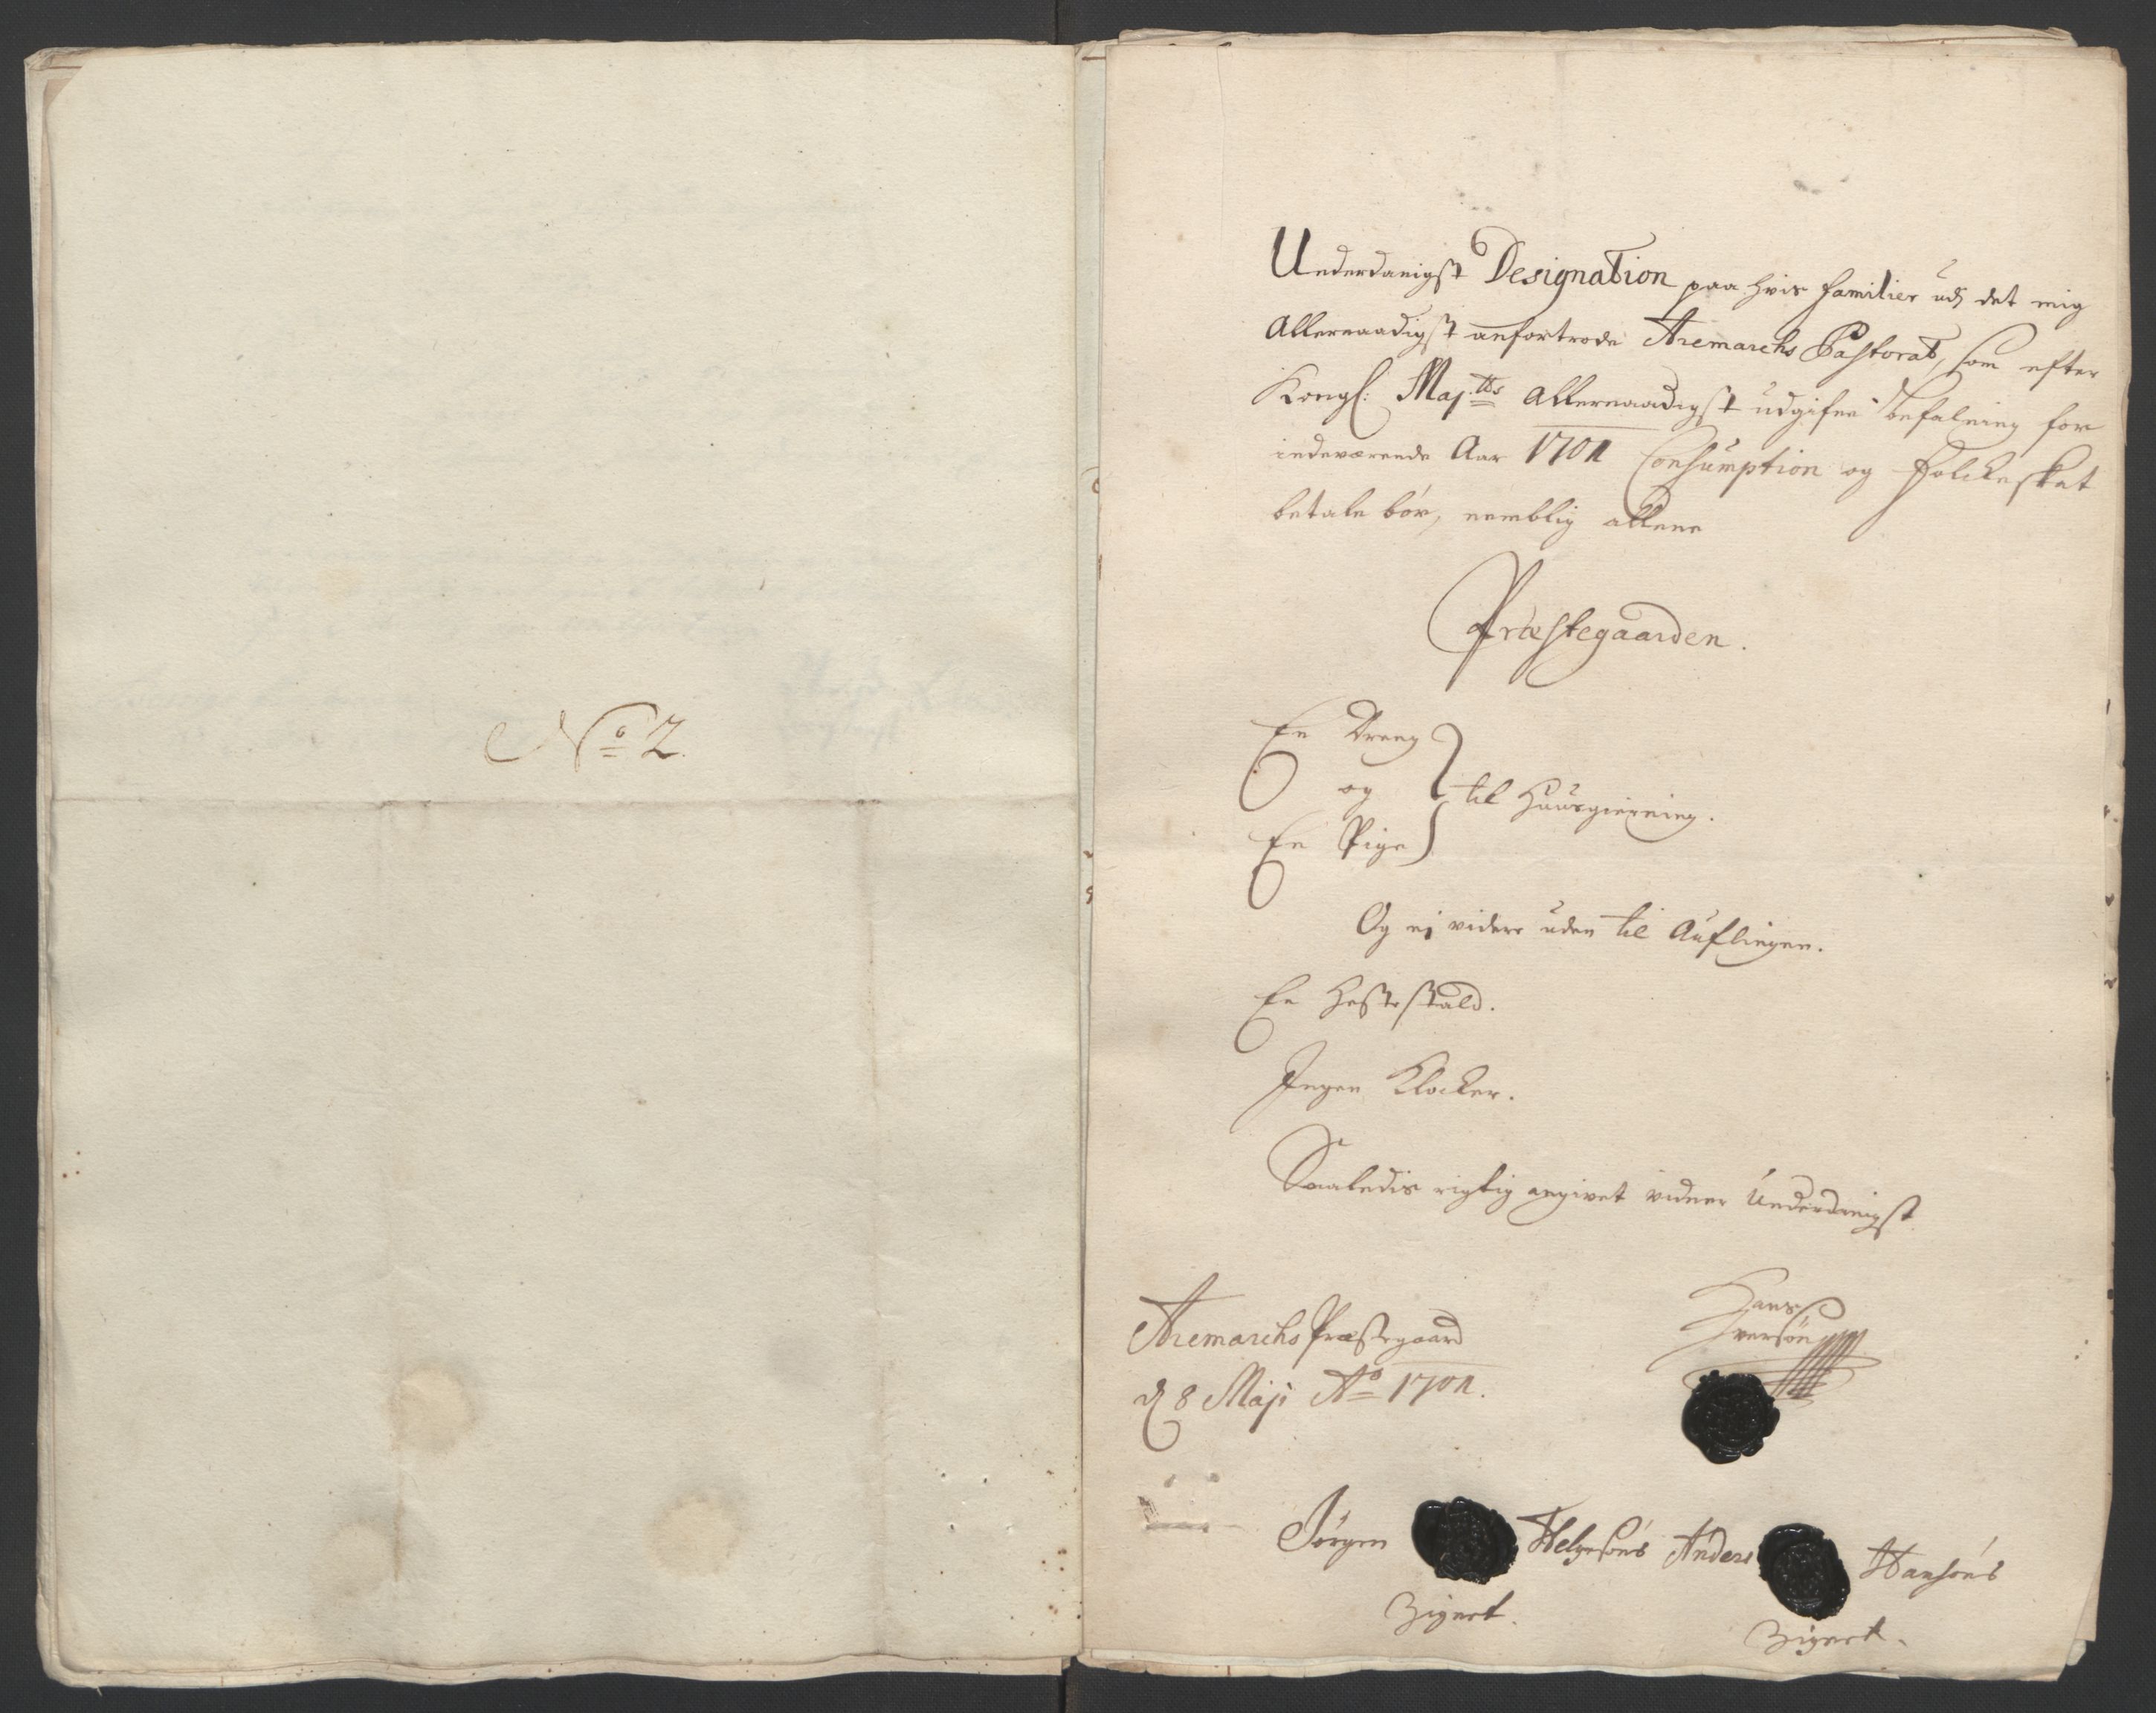 No 2.
Underdanigst Designation paa hvis familier udj det mig
Allernaadigst anfortrode Aremarchs Pastorat, som efter
Kongl: Maj:tts allernaadigst udgifne befalning for
indeværende Aar 1701 Consumption og Folckeskat
betale bør, nemblig allene
Præstegaarden.
En Dreng
og til Huusgierning.
En Pige
Og ej videre uden til Auflingen.
En Hestestald.
Ingen Klocker.
Saaledis rigtig angivet vidner Underdanigst
Aremarchs Præstegaard
d 8 Maji Ao 1701.
Hans
Iversøn
Jørgen Helgesøns Anders Hansøns
Zignet. Zignet.